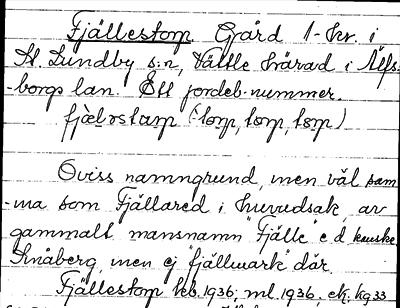 Fjällestorp. Gård 1-hr. i
St. Lundby s:n, Vättle härad i Älfs-
-borgs län. Ett jordeb. nummer.
fjæləstarp
Oviss namngrund, men väl sam-
-ma som Fjällared i huvudsak, av
gammalt mansnamn Fjälle e d kanske
Snåberg, men ej "fjällmark" där.
Fjällestorp hb. 1936, ml 1936, ek. kg 33